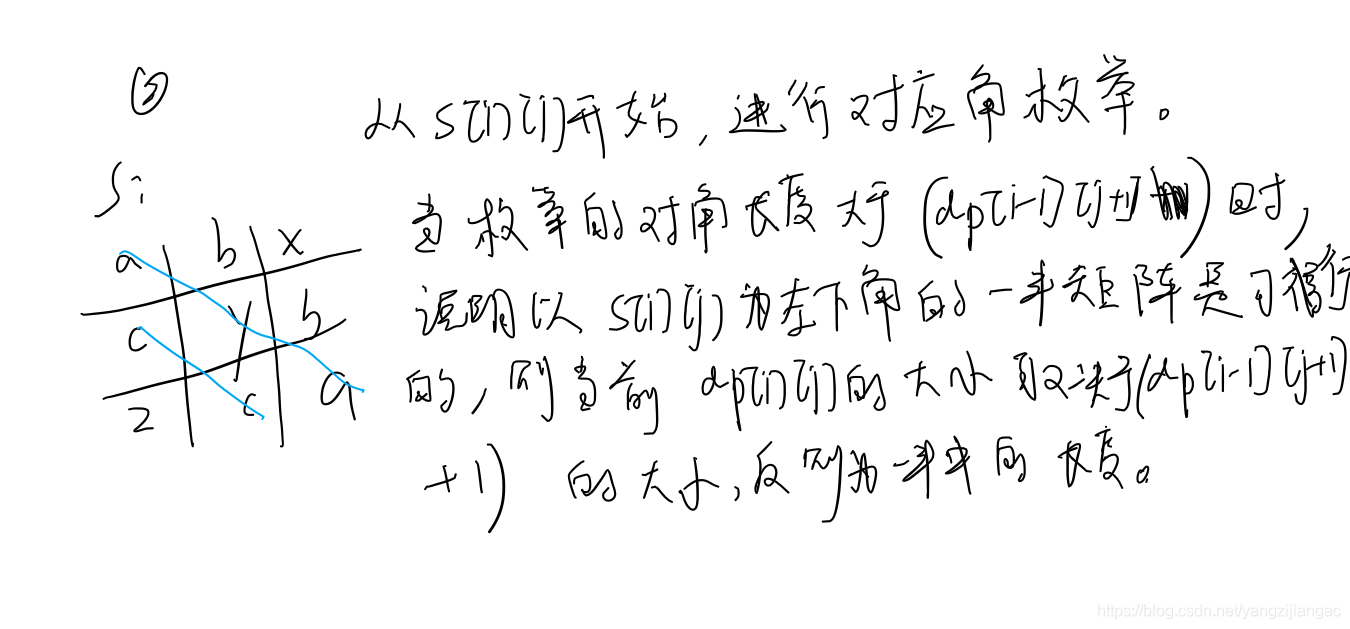 ②
从S[i][j]开始，进行对应角枚举。
S:
当枚举的对角长度大于(dp[i-1][j+1])时，
a b x
说明以S[i][j]为左下角的一半矩阵是可行
c y b
的，则当前dp[i][j]的大小取决于(dp[i-1][j+1]
z c a
+1)的大小，反则为一半的长度。
https://blog.csdn.net/yangzijiangac